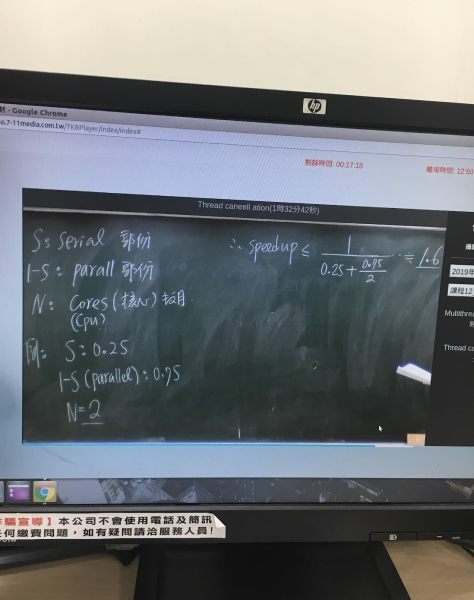 hp
- Google Chrome
o.7-11media.com.tw/TKBPlayer/index/index#
剩餘時間: 00:17:18
離場時間: 12:50
Thread caneell ation(1時32分42秒)
S: Serial 部份
1-S: parall 部份
N: Cores (核心) 數目
(CPU)
例: S: 0.25
1-S (parallel): 0.75
N=2
∴ speedup ≤ 1 / (0.25 + 0.75/2) ≒ 1.6
2019年
課程12
Multithrea
Thread ca
騙宣導】本公司不會使用電話及簡訊
任何繳費問題,如有疑問請洽服務人員!